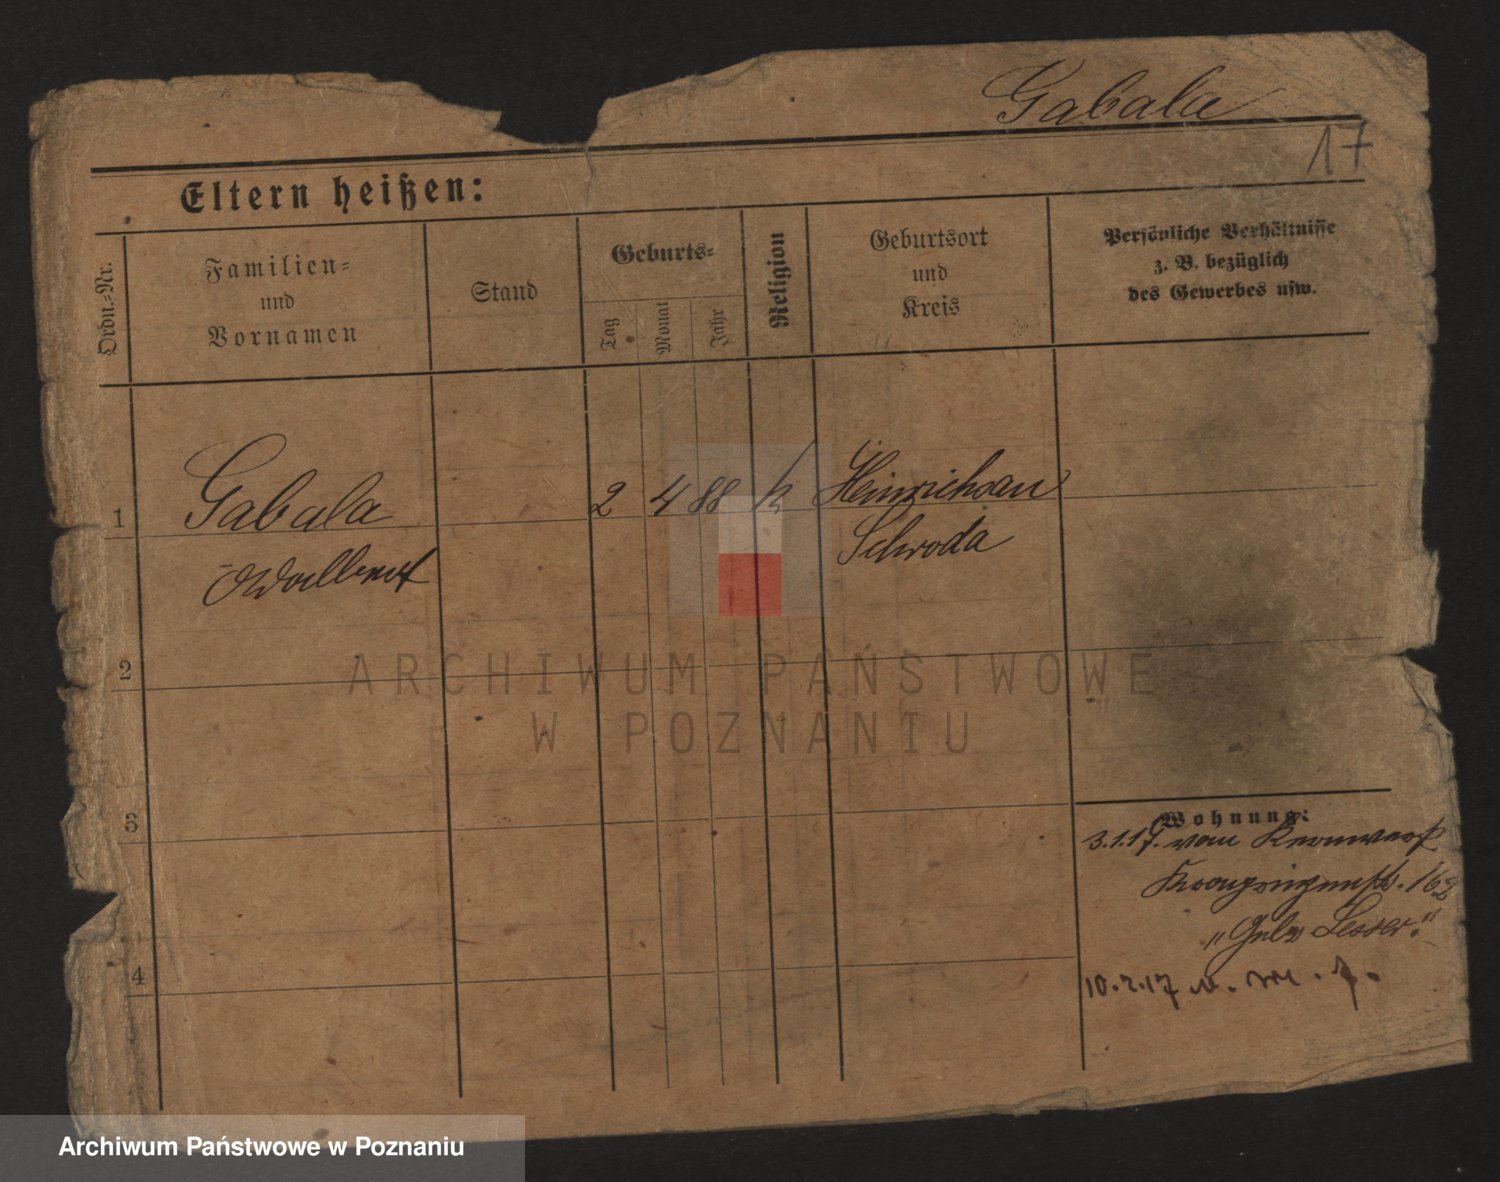 Gabala
17
Eltern heißen:
Ordn.-Nr.
Familien-
und
Vornamen
Stand
Geburts-
Tag
Monat
Jahr
Religion
Geburtsort
und
Kreis
Persönliche Verhältnisse
z. B. bezüglich
des Gewerbes usw.
1
Gabala
2 4 88 k
Hinrichsau
Schroda
2
3
4
Wohnung:
3.1.17. von Kernwerk
162
"Lesser."
10.2.17 n.
ARCHIWUM PAŃSTWOWE
W POZNANIU
Archiwum Państwowe w Poznaniu